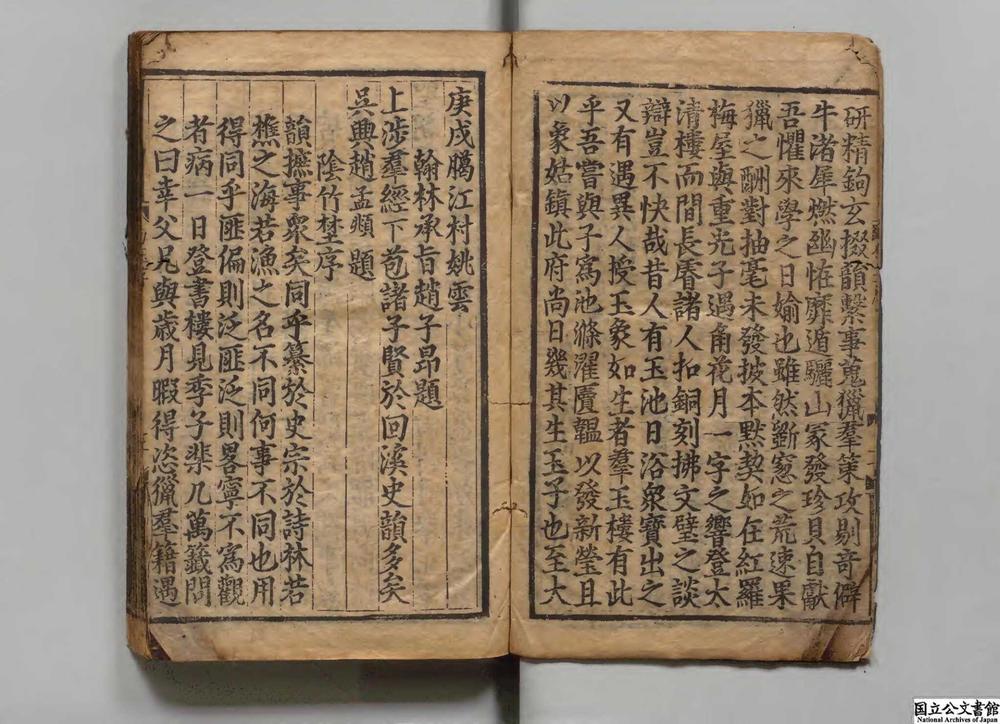 研精鉤玄掇韻繫事蒐獵羣策攻剔奇僻
牛渚犀燃幽恠靡遁驪山冢發珍貝自獻
吾懼來學之日媮也雖然斷窓之荒速果
獵之酬對抽毫未發披本黙契如在紅羅
梅屋與重光子遇角花月一字之響登太
清樓而間長看諸人扣銅刻拂文璧之談
辯豈不快哉昔人有玉池日浴衆寶出之
又有遇異人授玉象如生者羣玉樓有此
乎吾嘗與子寫池滌濯匵韞以發新瑩且
以象姑鎮此府尚日幾其生玉子也至大
庚戌臈江村姚雲
翰林承旨趙子昂題
上涉羣經下苞諸子賢於回溪史韻多矣
吳興趙孟頫題
陰竹埜序
韻摭事衆矣同乎纂於史宗於詩林若
樵之海若漁之名不同何事不同也用
得同乎匪偏則泛匪泛則畧寧不爲觀
者病一日登書樓見季子棐几萬籤問
之曰幸父兄與歳月暇得恣獵羣籍遇
国立公文書館
National Archives of Japan